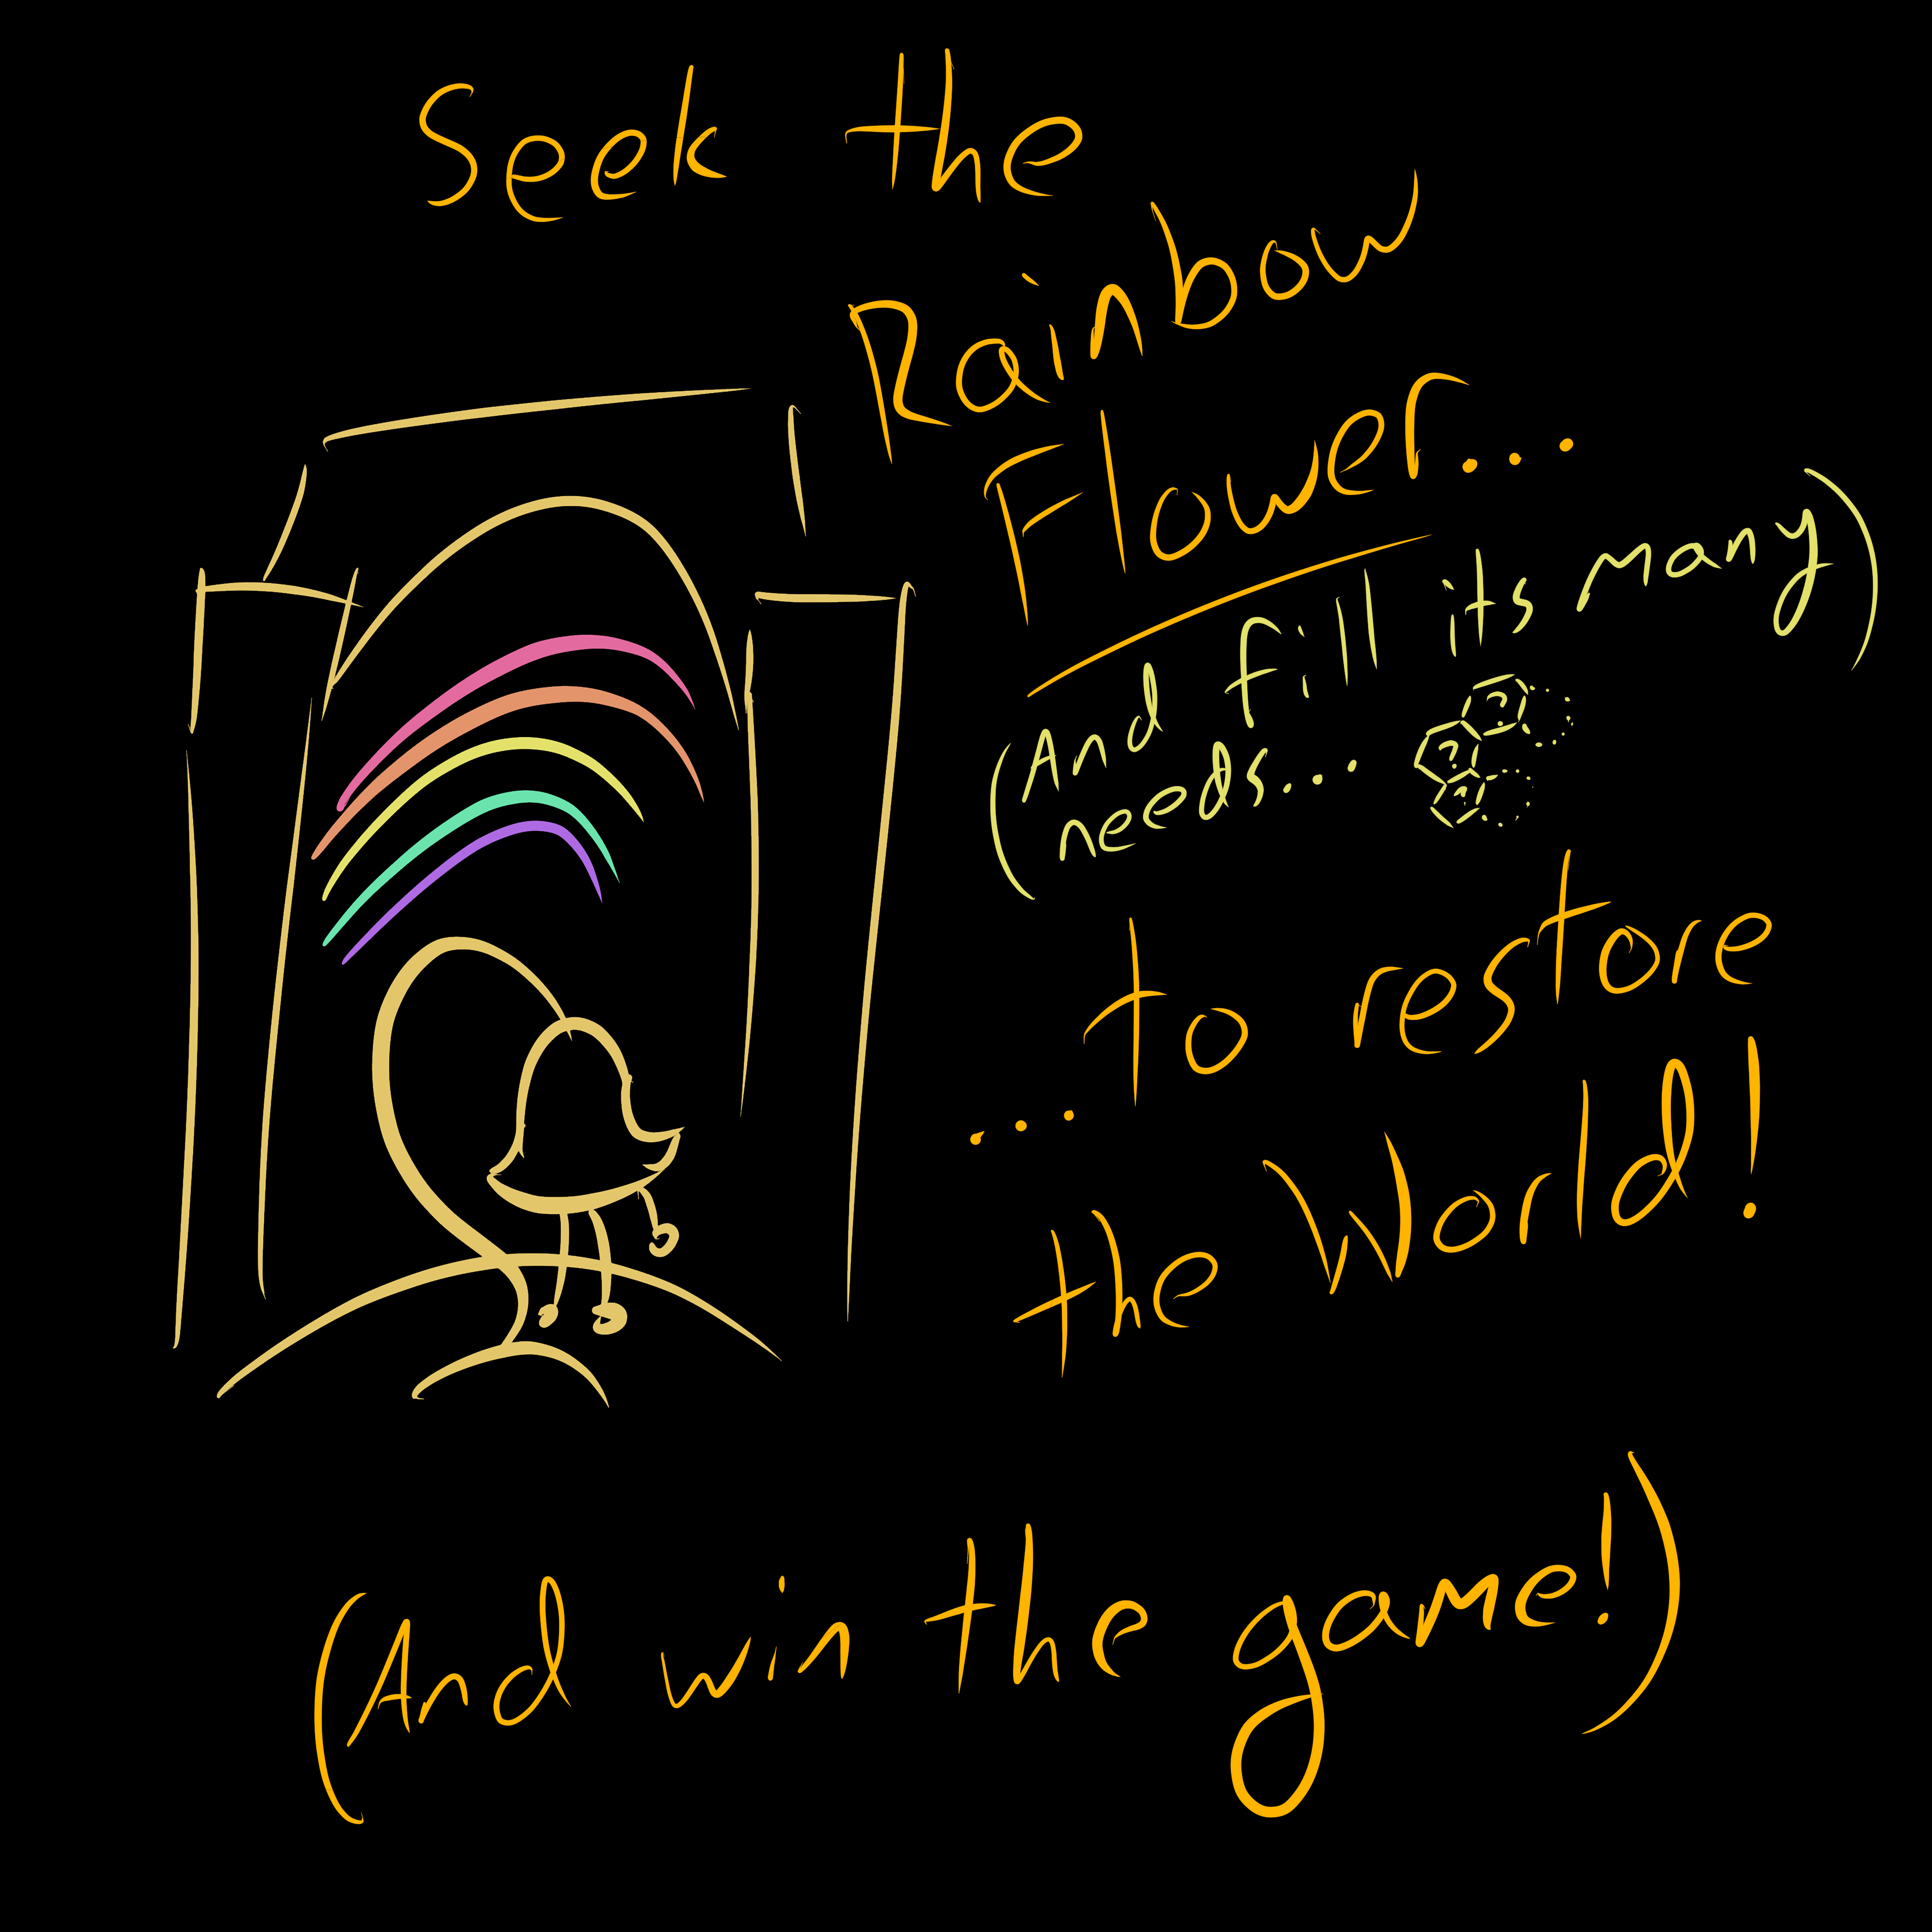 Seek the
Rainbow
Flower...
(And fill its many)
needs...
? ? ?
...to restore
the World!
(And win the game!)